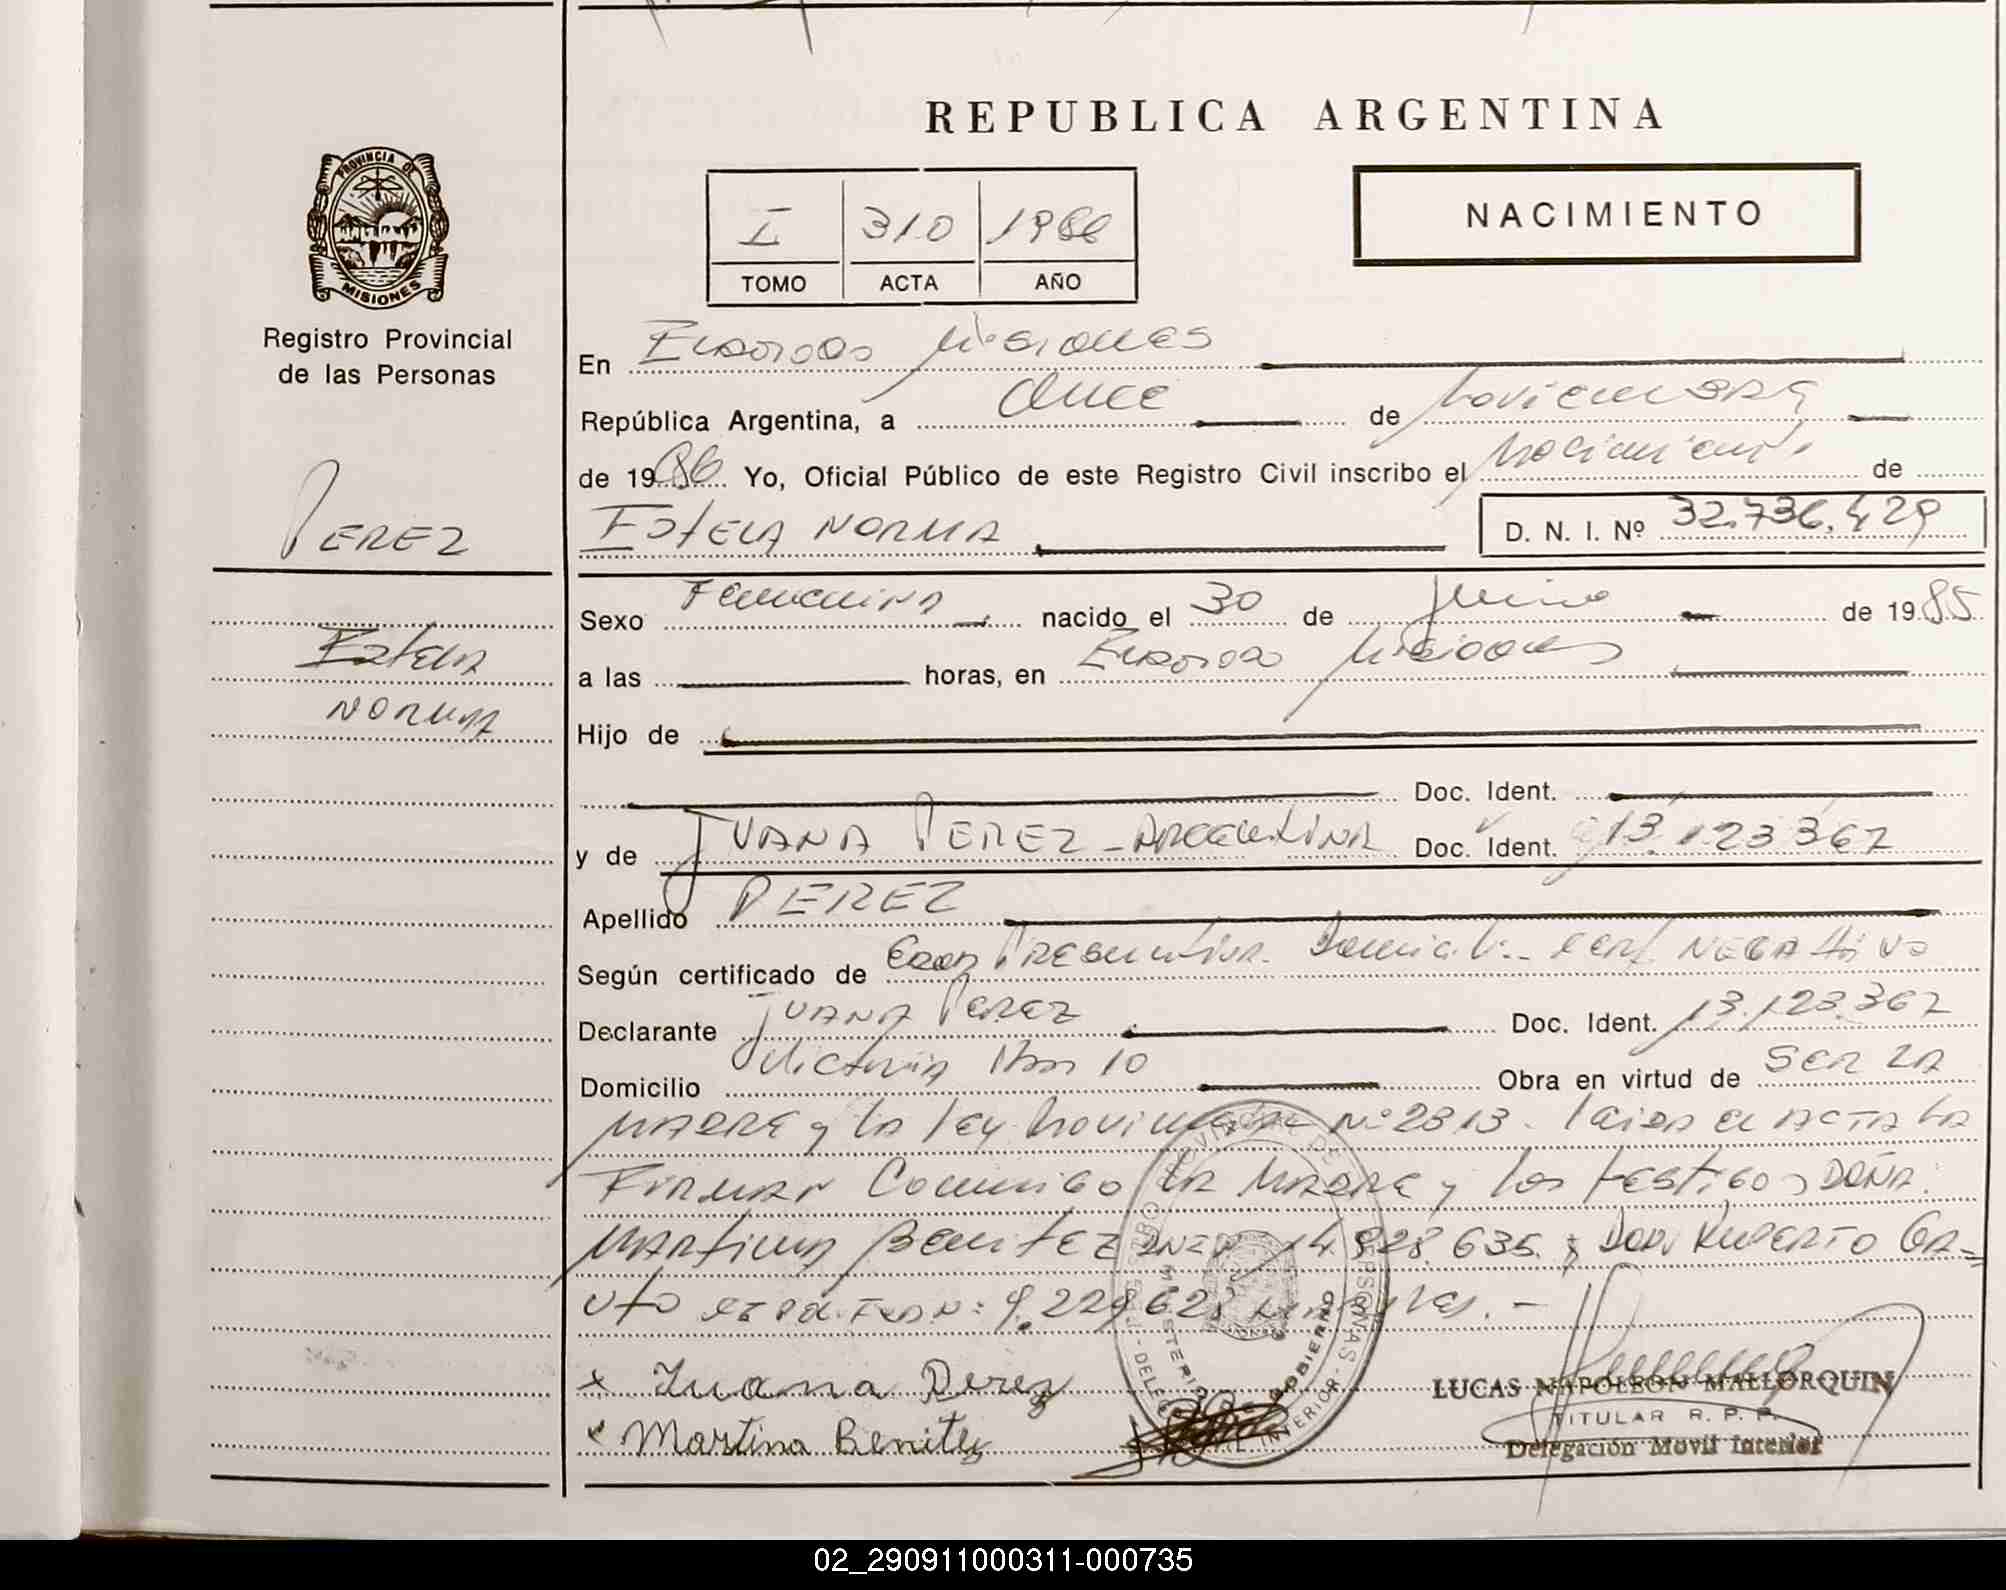 REPUBLICA ARGENTINA
PROVINCIA DE
MISIONES
Registro Provincial
de las Personas
I 310 1986
TOMO ACTA AÑO
NACIMIENTO
En Eldorado Misiones
República Argentina, a once de noviembre
de 1986 Yo, Oficial Público de este Registro Civil inscribo el nacimiento de
PEREZ
ESTELA NORMA D. N. I. Nº 32.736.429
Estela
NORMA
Sexo Femenina nacido el 30 de Junio de 1985
a las horas, en Eldorado Misiones
Hijo de
Doc. Ident.
y de JUANA PEREZ - ARGENTINA Doc. Ident. 13.123.367
Apellido PEREZ
Según certificado de Edad Presuntiva. Cert NEGATIVO
Declarante JUANA PEREZ Doc. Ident. 13.123.367
Domicilio Victoria Km 10 Obra en virtud de SER LA
MADRE y la ley Nº 2813. leida el ACTA LA
FIRMAN Conmigo LA MADRE y los testigos DOÑA:
MARTINA BENITEZ 14.928.635. y DON RUPERTO GA=
UTO 9.229.628
x Juana Perez
x Martina Benitez
LUCAS NAPOLEON MALLORQUIN
TITULAR R. P. P.
Delegación Movil Interior
02_290911000311-000735